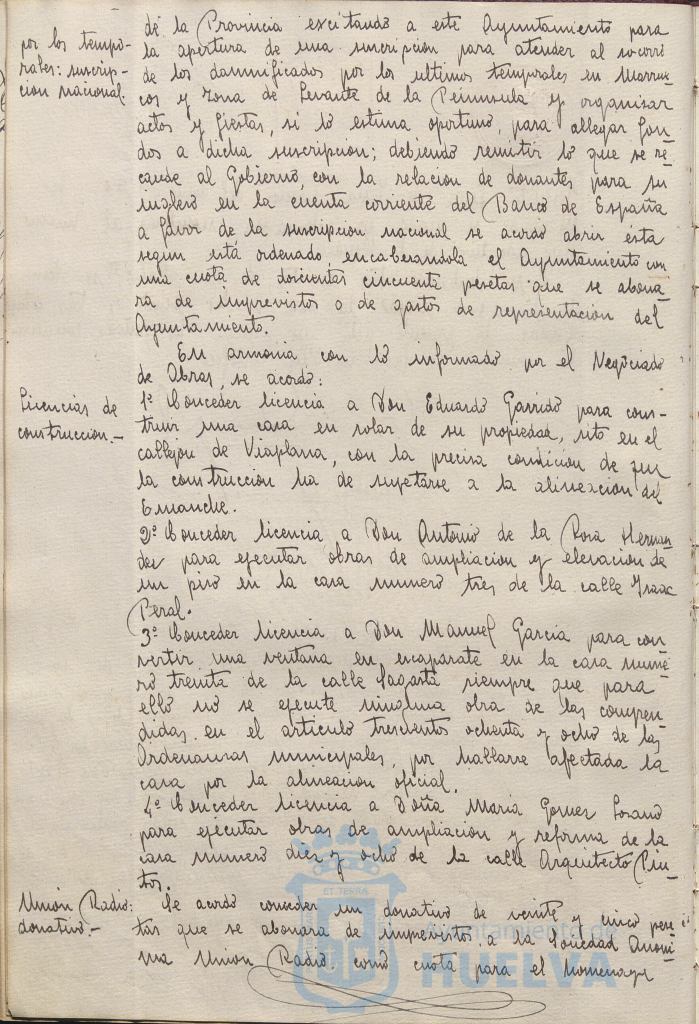 por los tempo-
rales: suscrip-
cion nacional:
de la Provincia excitando a este Ayuntamiento para
la apertura de una suscripcion para atender al socorro
de los damnificados por los ultimos temporales en Marrue-
cos y zona de Levante de la Peninsula y organizar
actos y fiestas, si lo estima oportuno, para allegar fon-
dos a dicha suscripcion; debiendo remitir lo que se re-
caude al Gobierno, con la relacion de donantes para su
ingreso en la cuenta corriente del Banco de España
a favor de la suscripcion nacional se acordo abrir esta
segun está ordenado, encabezandola el Ayuntamiento con
una cuota de doscientas cincuenta pesetas que se abona-
ra de imprevistos o de gastos de representacion del
Ayuntamiento.
En armonia con lo informado por el Negociado
de Obras, se acordo:
Licencias de
construccion.-
1º Conceder licencia a Don Eduardo Garrido para cons-
truir una casa en solar de su propiedad, sito en el
callejon de Viaplana, con la precisa condicion de que
la construccion ha de sujetarse a la alineacion del
Ensanche.
2º Conceder licencia a Don Antonio de la Rosa Hernan-
dez para ejecutar obras de ampliacion y elevacion de
un piso en la casa numero tres de la calle Isaac
Peral.
3º Conceder licencia a Don Manuel Garcia para con-
vertir una ventana en escaparate en la casa nume-
ro treinta de la calle Sagasta siempre que para
ello no se ejecute ninguna obra de las compren-
didas en el articulo trescientos ochenta y ocho de las
Ordenanzas municipales, por hallarse afectada la
casa por la alineacion oficial.
4º Conceder licencia a Doña Maria Gomez Lozano
para ejecutar obras de ampliacion y reforma de la
casa numero diez y ocho de la calle Arquitecto Pin-
tos.
Union Radio:
donativo.-
Se acordo conceder un donativo de veinte y cinco pese-
tas que se abonara de imprevistos, a la Sociedad Anoni-
ma Union Radio, como cuota para el homenaje
ET TERRA
Ayuntamiento de
HUELVA